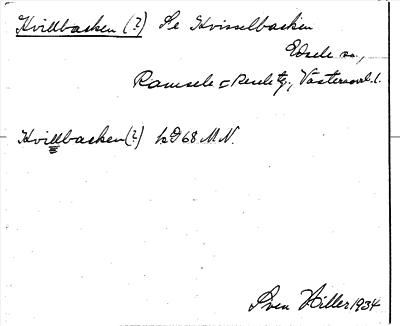 Kvillbacken (?) Se Kvisselbacken
Edsele sn,
Ramsele o Resele tg., Västernorrl. l.
Kvillbacken (?) bD 68 M.N.
Sven Hiller 1934